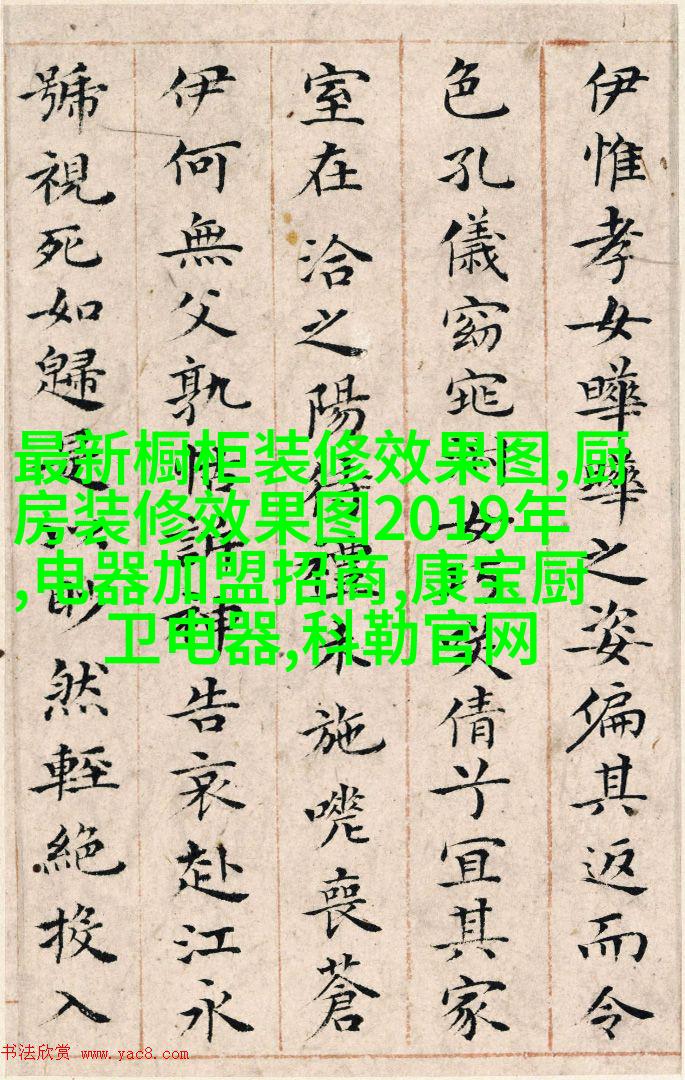 伊惟孝女曄曄之姿偏其返而令
色孔儀窈窕淑女巧笑倩兮宜其家
室在洽之陽待禮未施嗟喪蒼
伊何無父孰怙訴神告哀赴江永
號視死如歸是以眇然輕絕投入
最新橱柜装修效果图,厨
房装修效果图2019年
,电器加盟招商,康宝厨
卫电器,科勒官网
书法欣赏 www.yac8.com